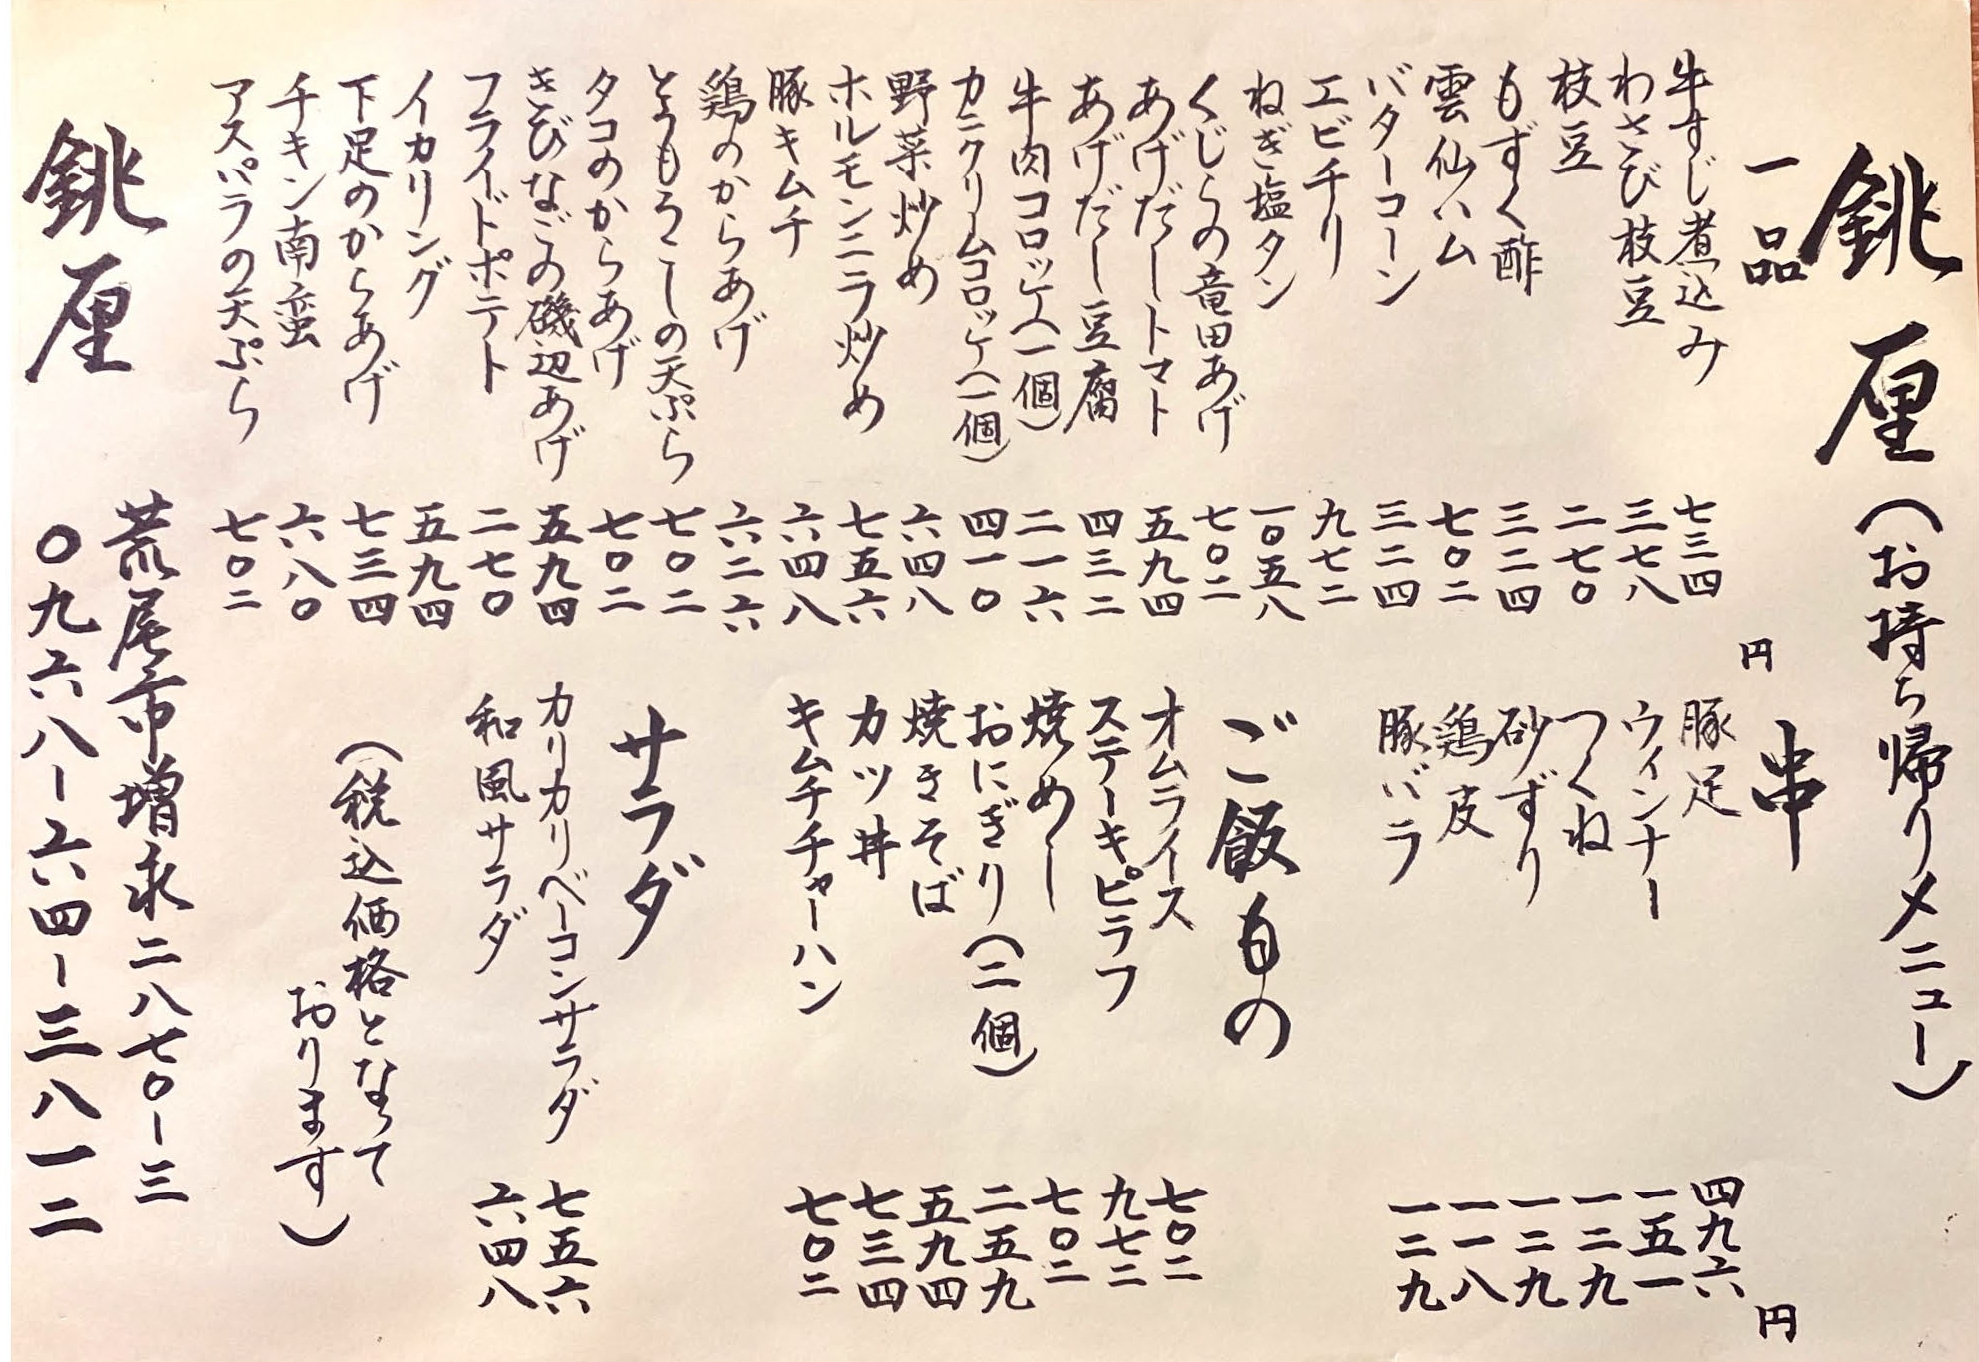 銚厘(お持ち帰りメニュー)
一品 円
牛すじ煮込み 七三四
わさび枝豆 三七八
枝豆 二七〇
もずく酢 三二四
雲仙ハム 七〇二
バターコーン 三二四
エビチリ 九七二
ねぎ塩タン 一〇五八
くじらの竜田あげ 七〇二
あげだしトマト 五九四
あげだし豆腐 四三二
牛肉コロッケ(一個) 二一六
カニクリームコロッケ(一個) 四一〇
野菜炒め 六四八
ホルモンニラ炒め 七五六
豚キムチ 六四八
鶏のからあげ 六二六
とうもろこしの天ぷら 七〇二
タコのからあげ 七〇二
きびなごの磯辺あげ 五九四
フライドポテト 二七〇
イカリング 五九四
下足のからあげ 七三四
チキン南蛮 六八〇
アスパラの天ぷら 七〇二
串 円
豚足 四九六
ウィンナー 一五一
つくね 一二九
砂ずり 一二九
鶏皮 一一八
豚バラ 一二九
ご飯もの
オムライス 七〇二
ステーキピラフ 九七二
焼めし 七〇二
おにぎり(二個) 二五九
焼きそば 五九四
カツ丼 七三四
キムチチャーハン 七〇二
サラダ
カリカリベーコンサラダ 七五六
和風サラダ 六四八
(税込価格となって
おります)
荒尾市増永二八七〇ー三
銚厘 〇九六八ー六四ー三八一二